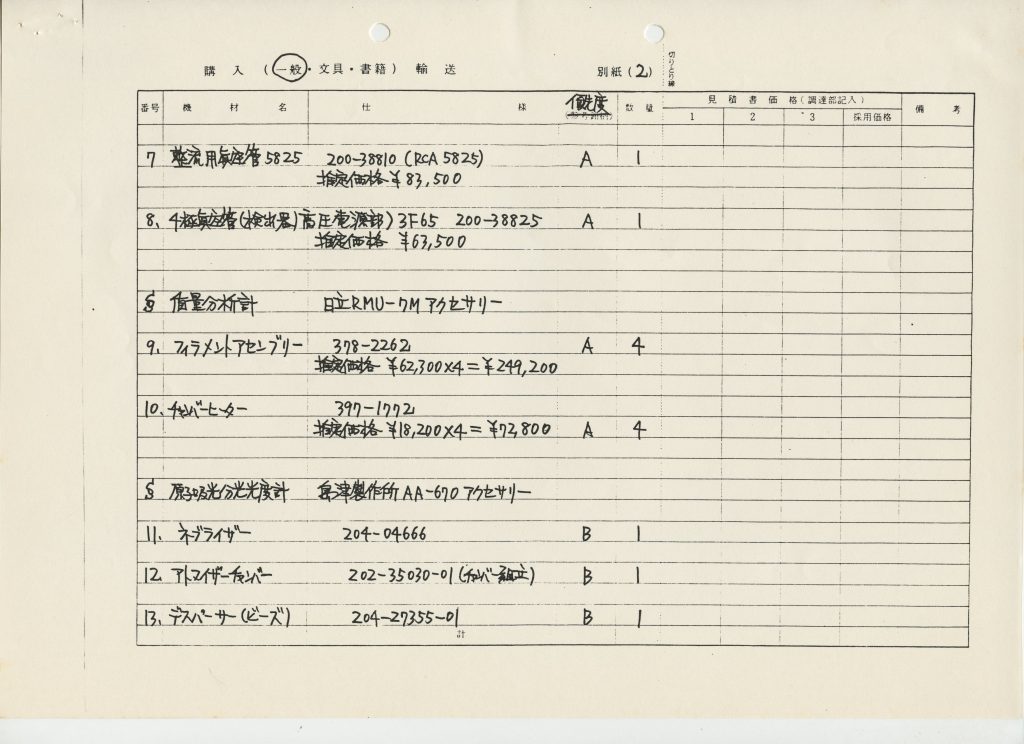 購入 (一般・文具・書籍) 輸送 別紙 (2) 切りとり線
番号 機材名 仕様 優先度 数量 見積書価格 (調達部記入) 備考
1 2 3 採用価格
7 整流用真空管 5825 200-38810 (RCA 5825) A 1
推定価格 ¥83,500
8. 4極真空管 (検出器) 高圧電源部) 3F65 200-38825 A 1
推定価格 ¥63,500
§ 質量分析計 日立RMU-7M アクセサリー
9. フィラメントアセンブリー 378-2262 A 4
推定価格 ¥62,300×4=¥249,200
10. チャンバーヒーター 397-1772
推定価格 ¥18,200×4=¥72,800 A 4
§ 原子吸光分光光度計 島津製作所 AA-670 アクセサリー
11. ネブライザー 204-04666 B 1
12. アトマイザーチャンバー 202-35030-01 (チャンバー組立) B 1
13. デスパーサー (ビーズ) 204-27355-01 B 1
計